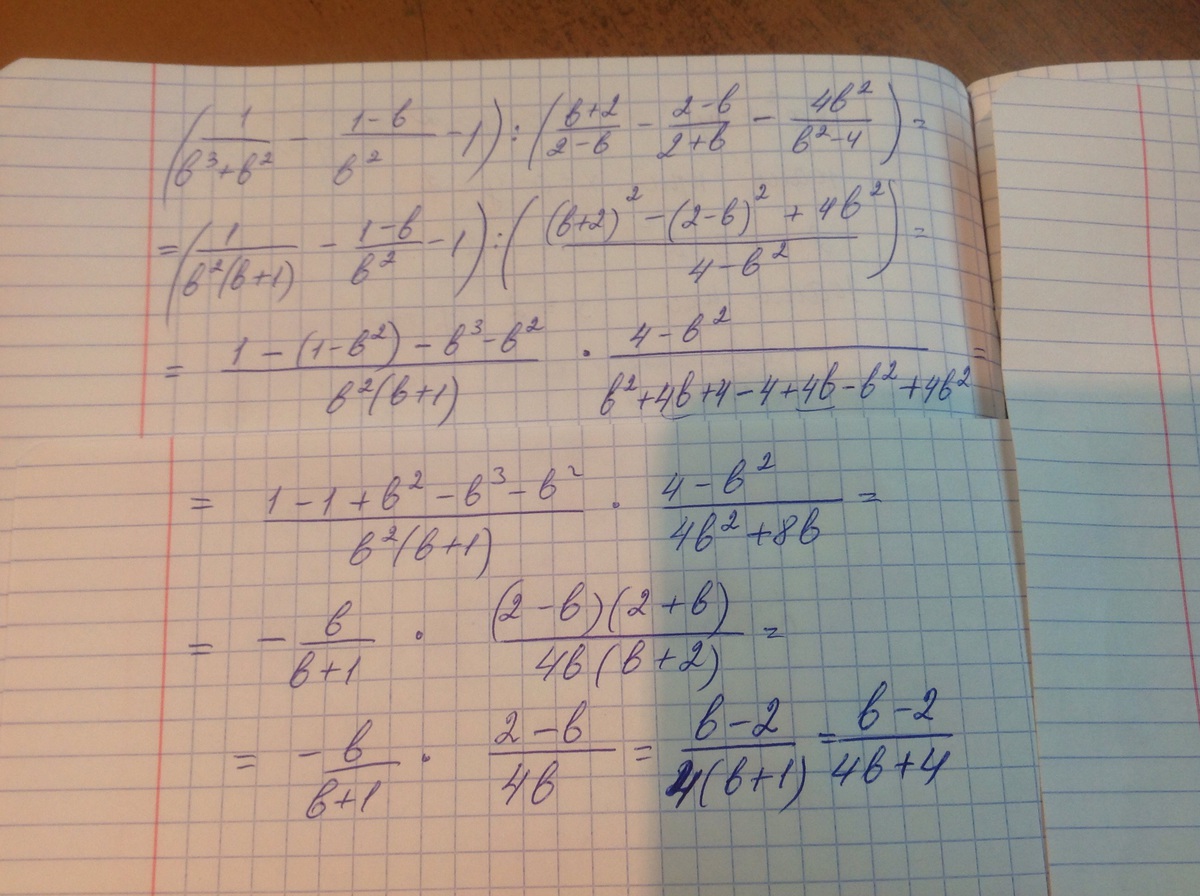 (1/(в³+в²) - (1-в)/в² - 1) : ((в+2)/(2-в) - (2-в)/(2+в) - 4в²/(в²-4)) =
= (1/(в²(в+1)) - (1-в)/в² - 1) : (((в+2)² - (2-в)² + 4в²)/(4-в²)) =
= (1 - (1-в²) - в³ - в²)/(в²(в+1)) · (4-в²)/(в²+4в+4-4+4в-в²+4в²) =
= (1-1+в²-в³-в²)/(в²(в+1)) · (4-в²)/(4в²+8в) =
= - в/(в+1) · ((2-в)(2+в))/(4в(в+2)) =
= -в/(в+1) · (2-в)/(4в) = (в-2)/(4(в+1)) = (в-2)/(4в+4)